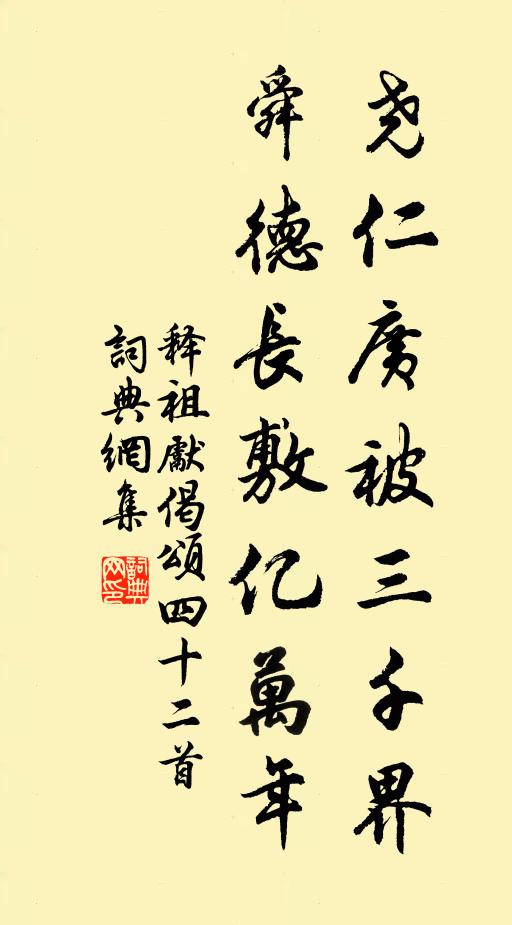 尧仁廣被三千界
舜德長敷亿萬年
释祖獻偈頌四十二首
詞典網集
詞典网印